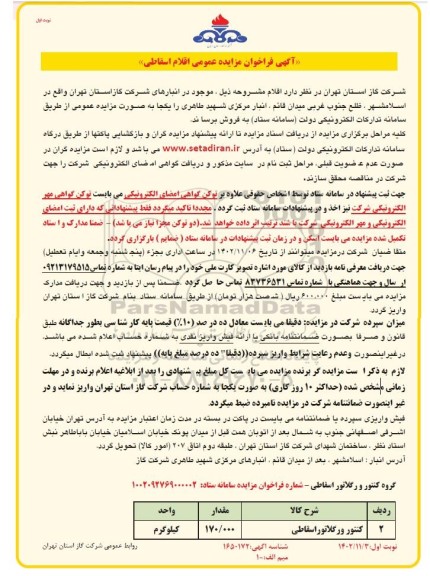 نوبت اول
«آگهی فراخوان مزایده عمومی اقلام اسقاطی»
شرکت گاز استان تهران در نظر دارد اقلام مشروحه ذیل ، موجود در انبارهای شرکت گازاستان تهران واقع در
اسلامشهر ، ضلع جنوب غربی میدان قائم ، انبار مرکزی شهید طاهری را یکجا به صورت مزایده عمومی از طریق
سامانه تدارکات الکترونیکی دولت (سامانه ستاد) به فروش برساند.
کلیه مراحل برگزاری مزایده از دریافت اسناد مزایده تا ارائه پیشنهاد مزایده گران و بازگشایی پاکتها از طریق درگاه
سامانه تدارکات الکترونیکی دولت (ستاد) به آدرس www.setadiran.ir می باشد و لازم است مزایده گران در
صورت عدم عضویت قبلی، مراحل ثبت نام در سایت مذکور و دریافت گواهی امضای الکترونیکی شرکت را جهت
شرکت در مناقصه محقق سازند.
جهت ثبت پیشنهاد در سامانه ستاد توسط اشخاص حقوقی علاوه بر توکن گواهی امضای الکترونیکی می بایست توکن گواهی مهر
الکترونیکی شرکت نیز اخذ و در پیشنهادات سامانه ستاد ثبت گردد . مجددا تاکید میگردد فقط پیشنهاداتی که دارای ثبت امضای
الکترونیکی و مهر الکترونیکی شرکت باشند ترتیب اثر داده خواهد شد. (دو توکن مجزا نیاز می باشد) ضمنا مدارک و اسناد
تکمیل شده مزایده می بایست اسکن و در زمان ثبت پیشنهادات در سامانه ستاد ( ضمایم ) بارگزاری گردد.
متقاضیان شرکت درمزایده میتوانند از تاریخ ۱۴۰۲/۱۱/۰۶ در ساعت اداری بجزء (پنج شنبه وجمعه وایام تعطیل)
جهت دریافت معرفی نامه بازدید از کالای مورد اشاره تصویر کارت ملی خود را در پیام رسان ایتا به شماره تماس ۰۹۲۱۳۱۷۹۵۱۵
ارسال وجهت هماهنگی با شماره تماس ۸۳۷۳۶۵۳۱ تماس حاصل گردد .ضمنا پس از بازدید و جهت دریافت مدارک
مزایده می بایست مبلغ ۶۰۰٫۰۰۰ ریال ( شصت هزار تومان) از طریق سامانه ستاد بنام شرکت گاز استان تهران
واریز گردد.
میزان سپرده شرکت در مزایده: دقیقا می بایست معادل ده درصد (۱۰٪) قیمت پایه کارشناسی بطور جداگانه طبق
قانون و صرفا بصورت ضمانتنامه بانکی یا ارائه فیش واریز نقدی به شماره حساب اعلام شده می باشد.
درغیراینصورت وعدم رعایت شرایط واریز سپرده((دقیقا" ده درصد مبلغ پایه)) پیشنهاد ثبت شده ابطال میگردد.
لازم به ذکر است مزایده گر برنده مزایده می بایست کل مبلغ پیشنهادی را بعد از ابلاغیه اعلام برنده و در مهلت
زمانی مشخص شده (حداکثر ۱۰ روز کاری) به صورت یکجا به شماره حساب شرکت گاز استان تهران واریز نماید و در
غیر اینصورت ضمانتنامه شرکت در مزایده نامبرده ضبط میگردد.
فیش واریزی سپرده یا ضمانتنامه می بایست در پاکت در بسته در مدت زمان اعتبار مزایده به آدرس تهران خیابان
اشرفی اصفهانی جنوب به شمال بعد از اتوبان همت قبل از میدان پونک خیابان اسلامیان خیابان باباطاهر نبش
استاد نظر ، ساختمان شهدای شرکت گاز استان تهران ، طبقه دوم اتاق ۲۰۷ (امور کالا) تحویل گردد.
آدرس انبار : اسلامشهر ، بعد از میدان قائم ، انبارهای مرکزی شهید طاهری شرکت گاز
گروه کنتور و رگلاتور اسقاطی – شماره فراخوان مزایده سامانه ستاد: ۱۰۰۲۰۹۲۷۶۹۰۰۰۰۰۲
ردیف شرح کالا مقدار واحد
۲ کنتور ورگلاتوراسقاطی ۱۷۰/۰۰۰ کیلوگرم
نوبت اول:۱۴۰۲/۱۱/۳ شناسه آگهی:۱۶۵۰۱۷۲ روابط عمومی شرکت گاز استان تهران
میم الف:۱۰۰
ParsNamadData